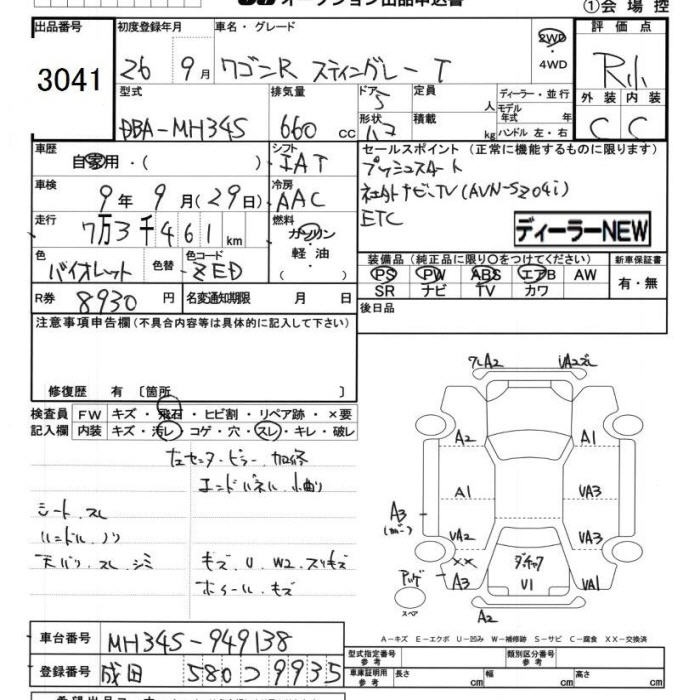 オークション出品申込書
①会場控
出品番号 初度登録年月 車名・グレード 評価点
3041 26 9月 ワゴンR スティングレー T 2WD ・4WD R小
型式 排気量 ドア 定員 ディーラー・並行 外装 内装
DBA-MH34S 660cc 5 人 モデル年式 年 C C
形状 積載 kg ハンドル 左・右
車歴 シフト セールスポイント (正常に機能するものに限ります)
自家用・( ) IAT プッシュスタート
車検 冷房 社外ナビ、TV(AVN-SZ04i)
9年9月(29日) AAC ETC
走行 燃料 ディーラーNEW
7万3千461km ガソリン 軽油
色 色替 色コード 装備品(純正品に限り○をつけてください) 新車保証書
バイオレット ZED PS PW ABS エアB AW 有・無
SR ナビ TV カワ
R券 8930円 名変通知期限 月 日 後日品
注意事項申告欄(不具合内容等は具体的に記入して下さい)
修復歴 有 〔箇所 〕
検査員 FW キズ・飛石・ヒビ割・リペア跡・×要
記入欄 内装 キズ・汚レ・コゲ・穴・スレ・キレ・破レ
左センターピラー、加修
エンドパネル、小曲り
シート、スレ
ハンドル、ノリ
天バリ、スレ、シミ キズ、U、W2、スリキズ
ホイール、キズ
A2
A2 A1
A1 VA3
A3
VA2 VA3
×× A3 U1 VA1
スペア A2
A-キズ E-エクボ U-凹み W-補修跡 S-サビ C-腐食 XX-交換済
車台番号 MH34S-949138 型式指定番号 参考 類別区分番号 参考
登録番号 成田 580 つ 9935 車庫証明用 参考 長さ cm 幅 cm 高さ cm